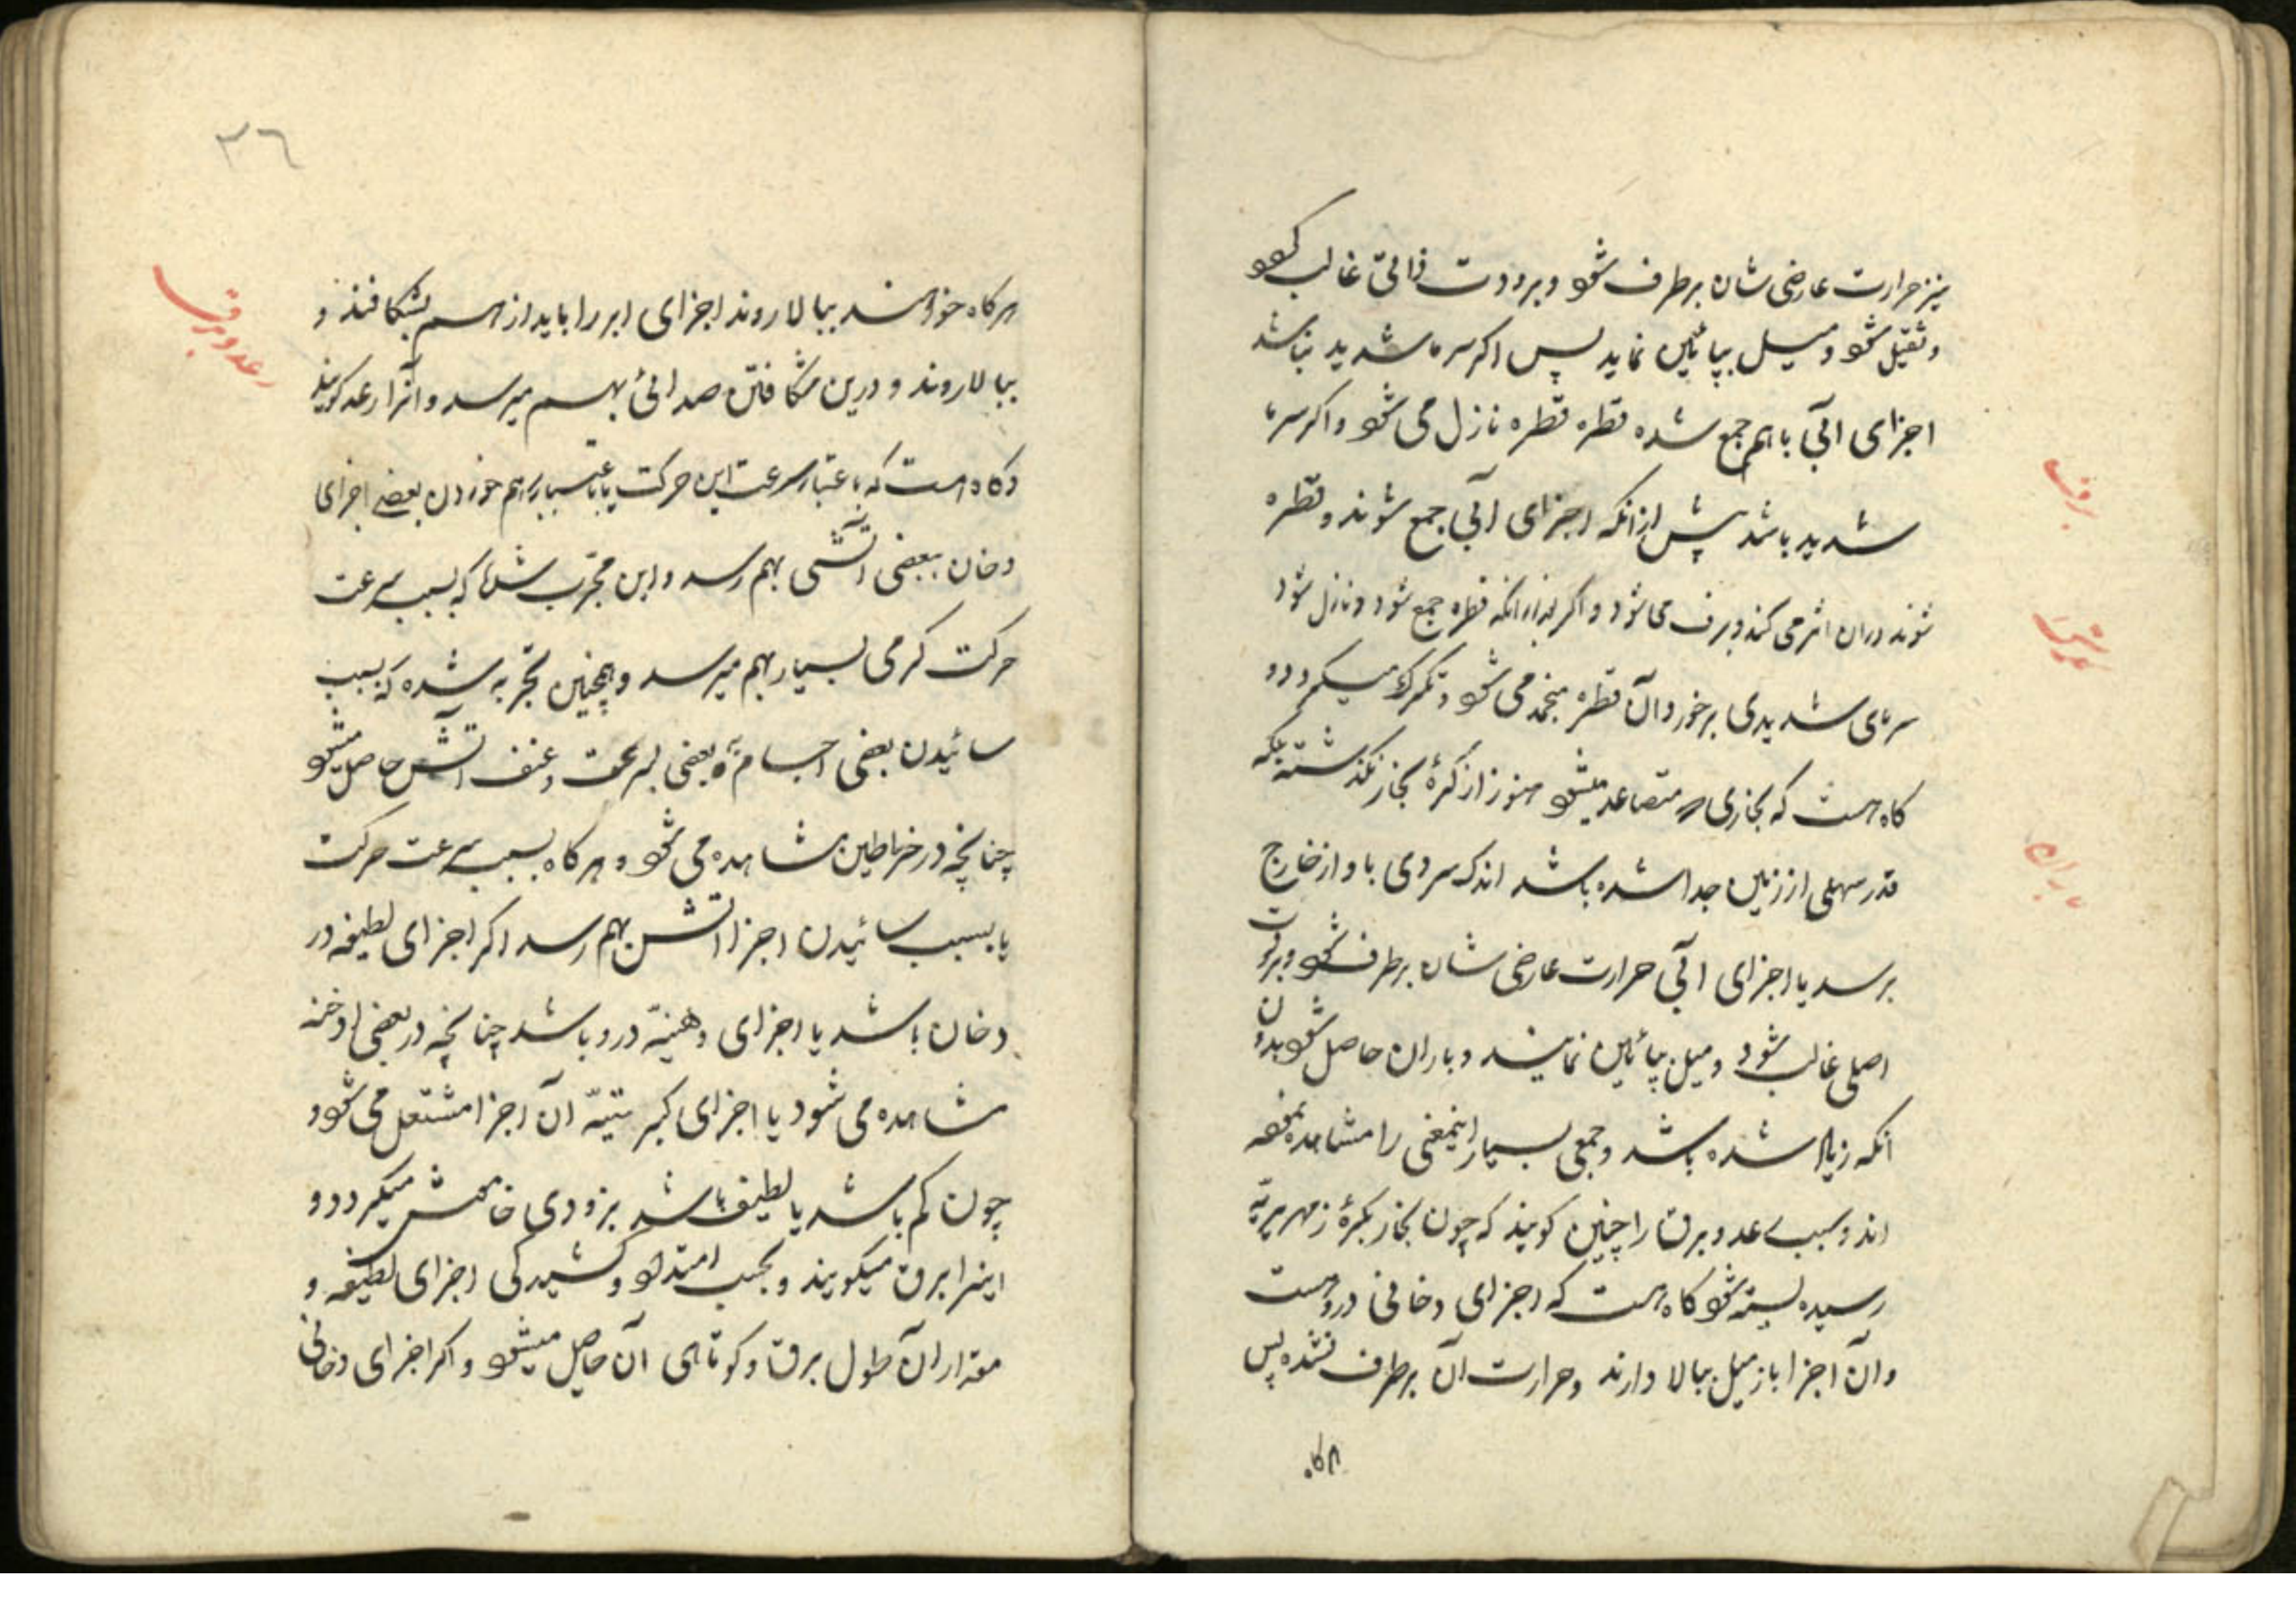 نیز حرارت عارضی شان برطرف شود و برودت ذاتی غالب شود
و ثقیل شود و میل بپائین نماید پس اکر سرما شدید نباشد
اجزای آبی باهم جمع شده قطره قطره نازل می شود و اکر سرما
شدید باشد پیش ازانکه اجزای آبی جمع شوند و قطره
شوند دران اثر می کند و برف می شود و اکر بعد ازانکه قطره جمع شود و نازل شود
سرمای شدیدی برخورد آن قطره منجمد می شود و تکرک میکردد و
کاه هست که بخاری متصاعد میشود هنوز از کرهٔ بخار نکذشته بلکه
قدر سهلی از زمین جدا شده باشد اندک سردی باو از خارج
برسد یا اجزای آبی حرارت عارضی شان برطرف شود و برودت
اصلی غالب شود و میل بپائین نمایند و باران حاصل شود بدون
انکه زیاد شده باشد و جمعی بسیار اینمعنی را مشاهده نموده
اند و سبب رعد و برق را چنین کویند که چون بخار بکرهٔ زمهریریه
رسیده بسته شود کاه هست که اجزای دخانی دروهست
وان اجزا باز میل ببالا دارند و حرارت آن برطرف نشده پس
هرکاه
برف
باران
٣٦
هرکاه خواهند ببالا روند اجزای ابر را باید از هم بشکافند و
ببالا روند و درین شکافتن صدائی بهم میرسد و آنرا رعد کویند
و کاه هست که باعتبار سرعت این حرکت یا باعتبار برهم خوردن بعضی اجزای
دخان ببعضی آتشی بهم رسد و این مجرب شده که بسبب سرعت
حرکت کرمی بسیار بهم میرسد و همچنین تجربه شده که بسبب
سائیدن بعضی اجسام به بعضی بسرعت و عنف آتش حاصل میشود
چنانچه در خراطین مشاهده می شود و هرکاه بسبب سرعت حرکت
یا بسبب سائیدن اجزا آتش بهم رسد اکر اجزای لطیفه در
دخان باشد یا اجزای دهنیته درو باشد چنانچه در بعضی ادخنه
مشاهده می شود یا اجزای کبریتیه آن اجزا مشتعل می شود
چون کم باشد یا لطیف باشد بزودی خاموش میکردد و
اینرا برق میکویند و بحسب امتداد و کشیدکی اجزای لطیفه و
مقدار آن طول برق و کوتاهی آن حاصل میشود و اکر اجزای دخانی
رعد و برق